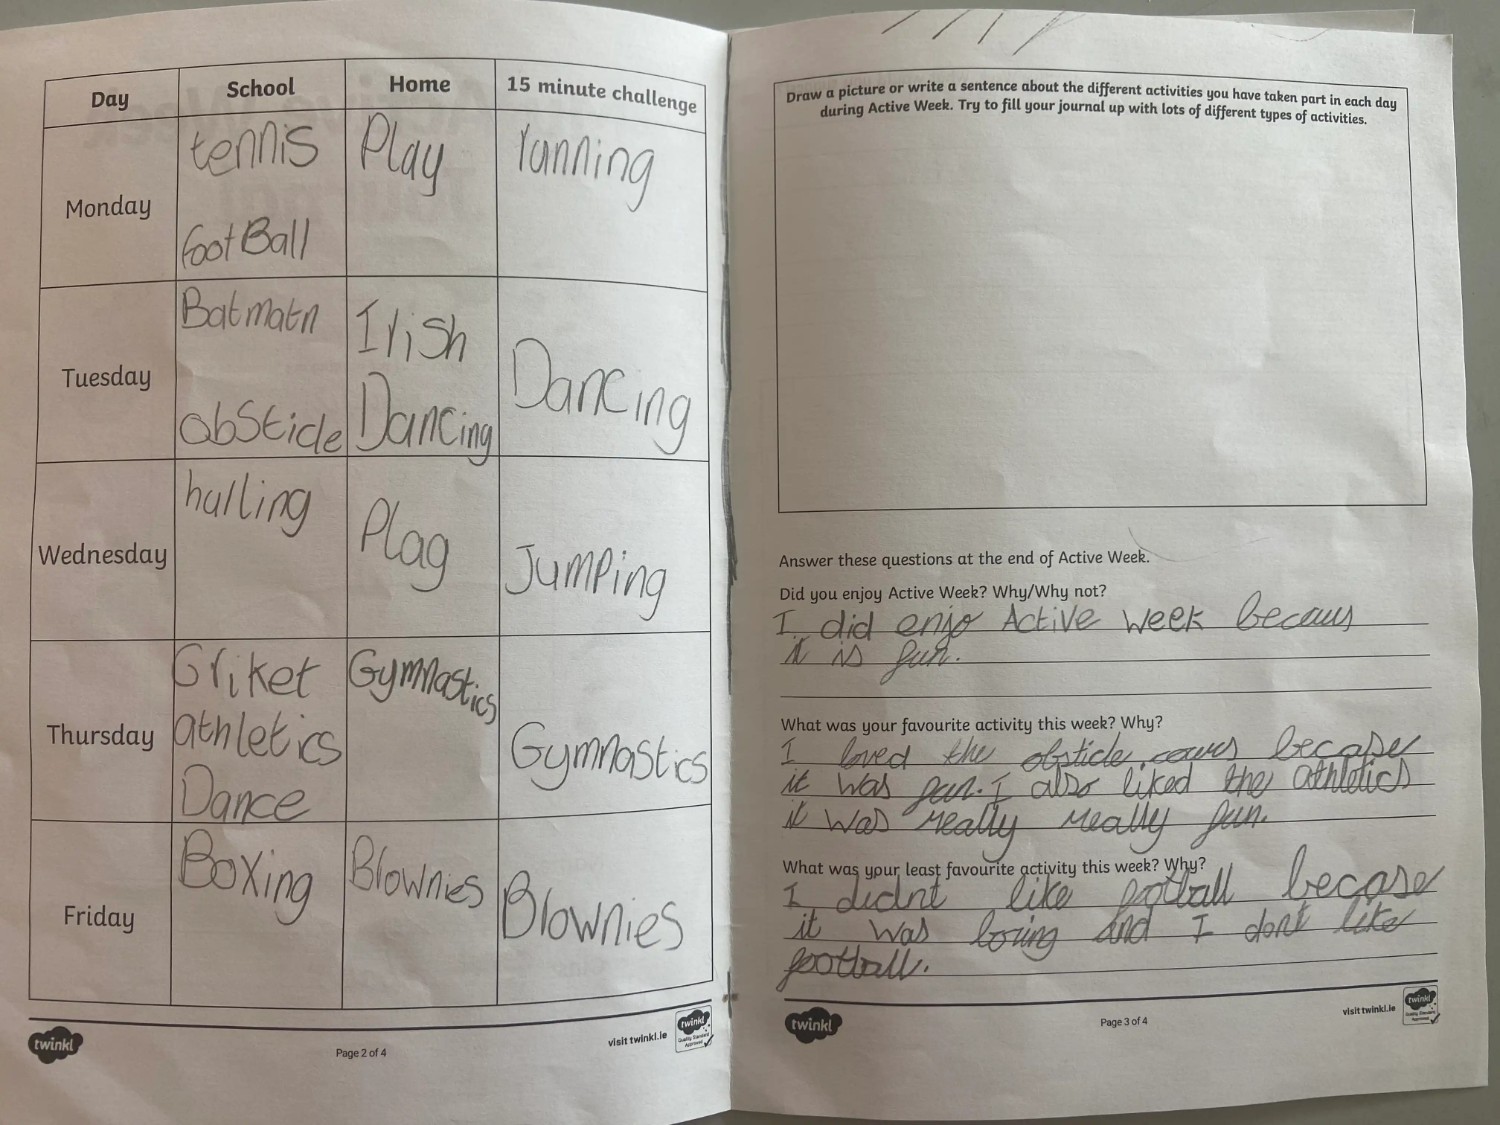 Day School Home 15 minute challenge
Monday
tennis
footBall
Play
running
Tuesday
Batmatn
obsticle
Irish
Dancing
Dancing
Wednesday
hurling
Play
Jumping
Thursday
Griket
athletics
Dance
Gymnastics
Gymnastics
Friday
Boxing
Brownies
Brownies
twinkl
Page 2 of 4
visit twinkl.ie
twinkl
Quality Standard
Approved
Draw a picture or write a sentence about the different activities you have taken part in each day
during Active Week. Try to fill your journal up with lots of different types of activities.
Answer these questions at the end of Active Week.
Did you enjoy Active Week? Why/Why not?
I did enjo Active week becaus
it is fun.
What was your favourite activity this week? Why?
I loved the obsticle cours becase
it was fun. I also liked the athletics
it was really really fun.
What was your least favourite activity this week? Why?
I didnt like football becase
it was boring and I dont like
football.
twinkl
Page 3 of 4
visit twinkl.ie
twinkl
Quality Standard
Approved